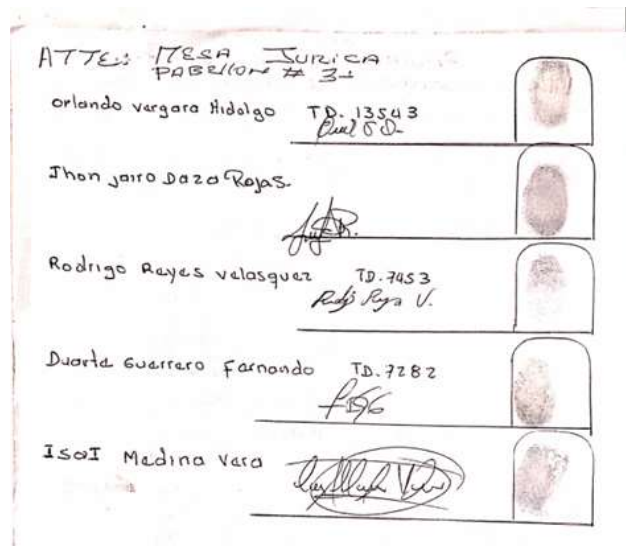 ATTE: MESA JURICA
PABELLON # 3-
orlando vergara Hidalgo TD. 13543
Jhon jairo Daza Rojas.
Rodrigo Reyes velasquez TD. 7453
Duarte Guerrero Fernando TD. 7282
IsaI Medina Vera